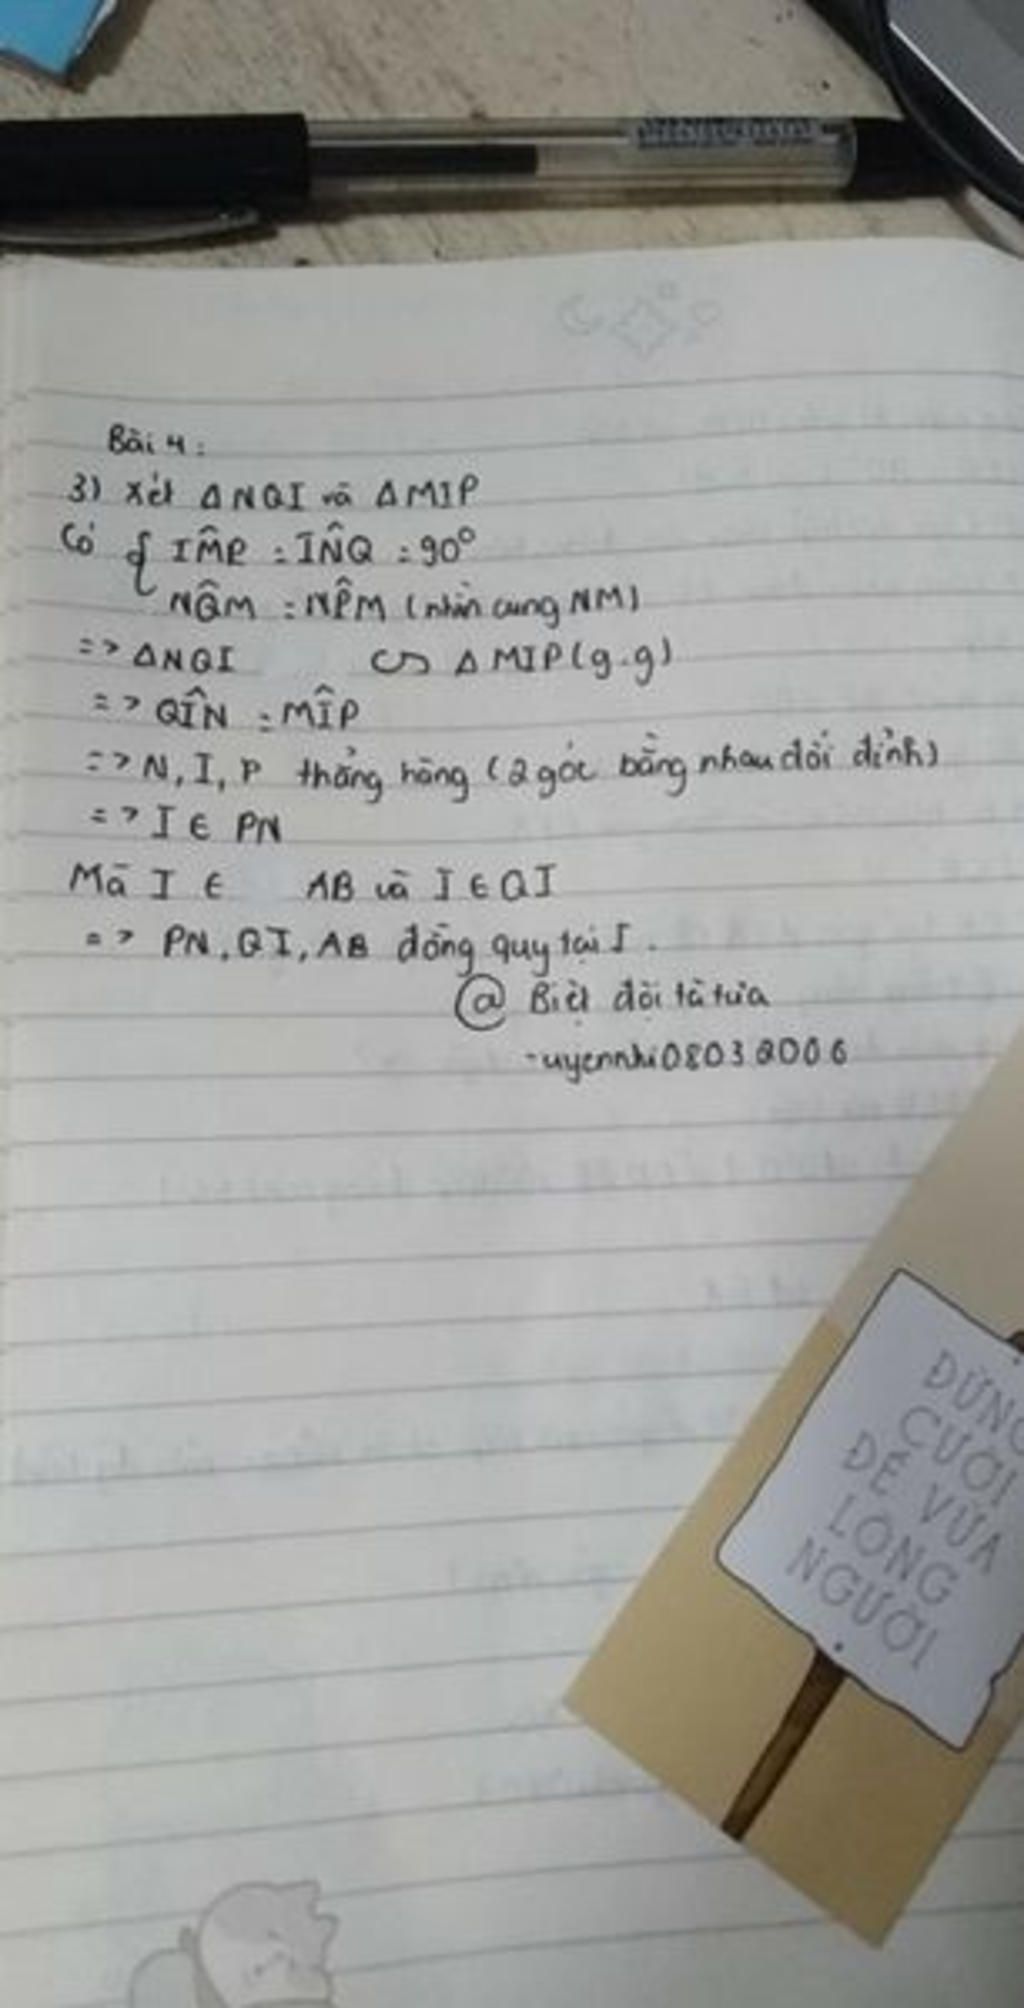 Bài 4:
3) Xét ΔNQI và ΔMIP
Có { IM̂P = IN̂Q = 90°
NQ̂M = NP̂M (nhìn cung NM)
=> ΔNQI ∽ ΔMIP (g.g)
=> QÎN = MÎP
=> N, I, P thẳng hàng (2 góc bằng nhau đối đỉnh)
=> I ∈ PN
Mà I ∈ AB và I ∈ QI
=> PN, QI, AB đồng quy tại I.
@ Biệt đội tà tưa
-uyennhi08032006
ĐỪNG
CƯỜI
ĐỂ VỪA
LÒNG
NGƯỜI